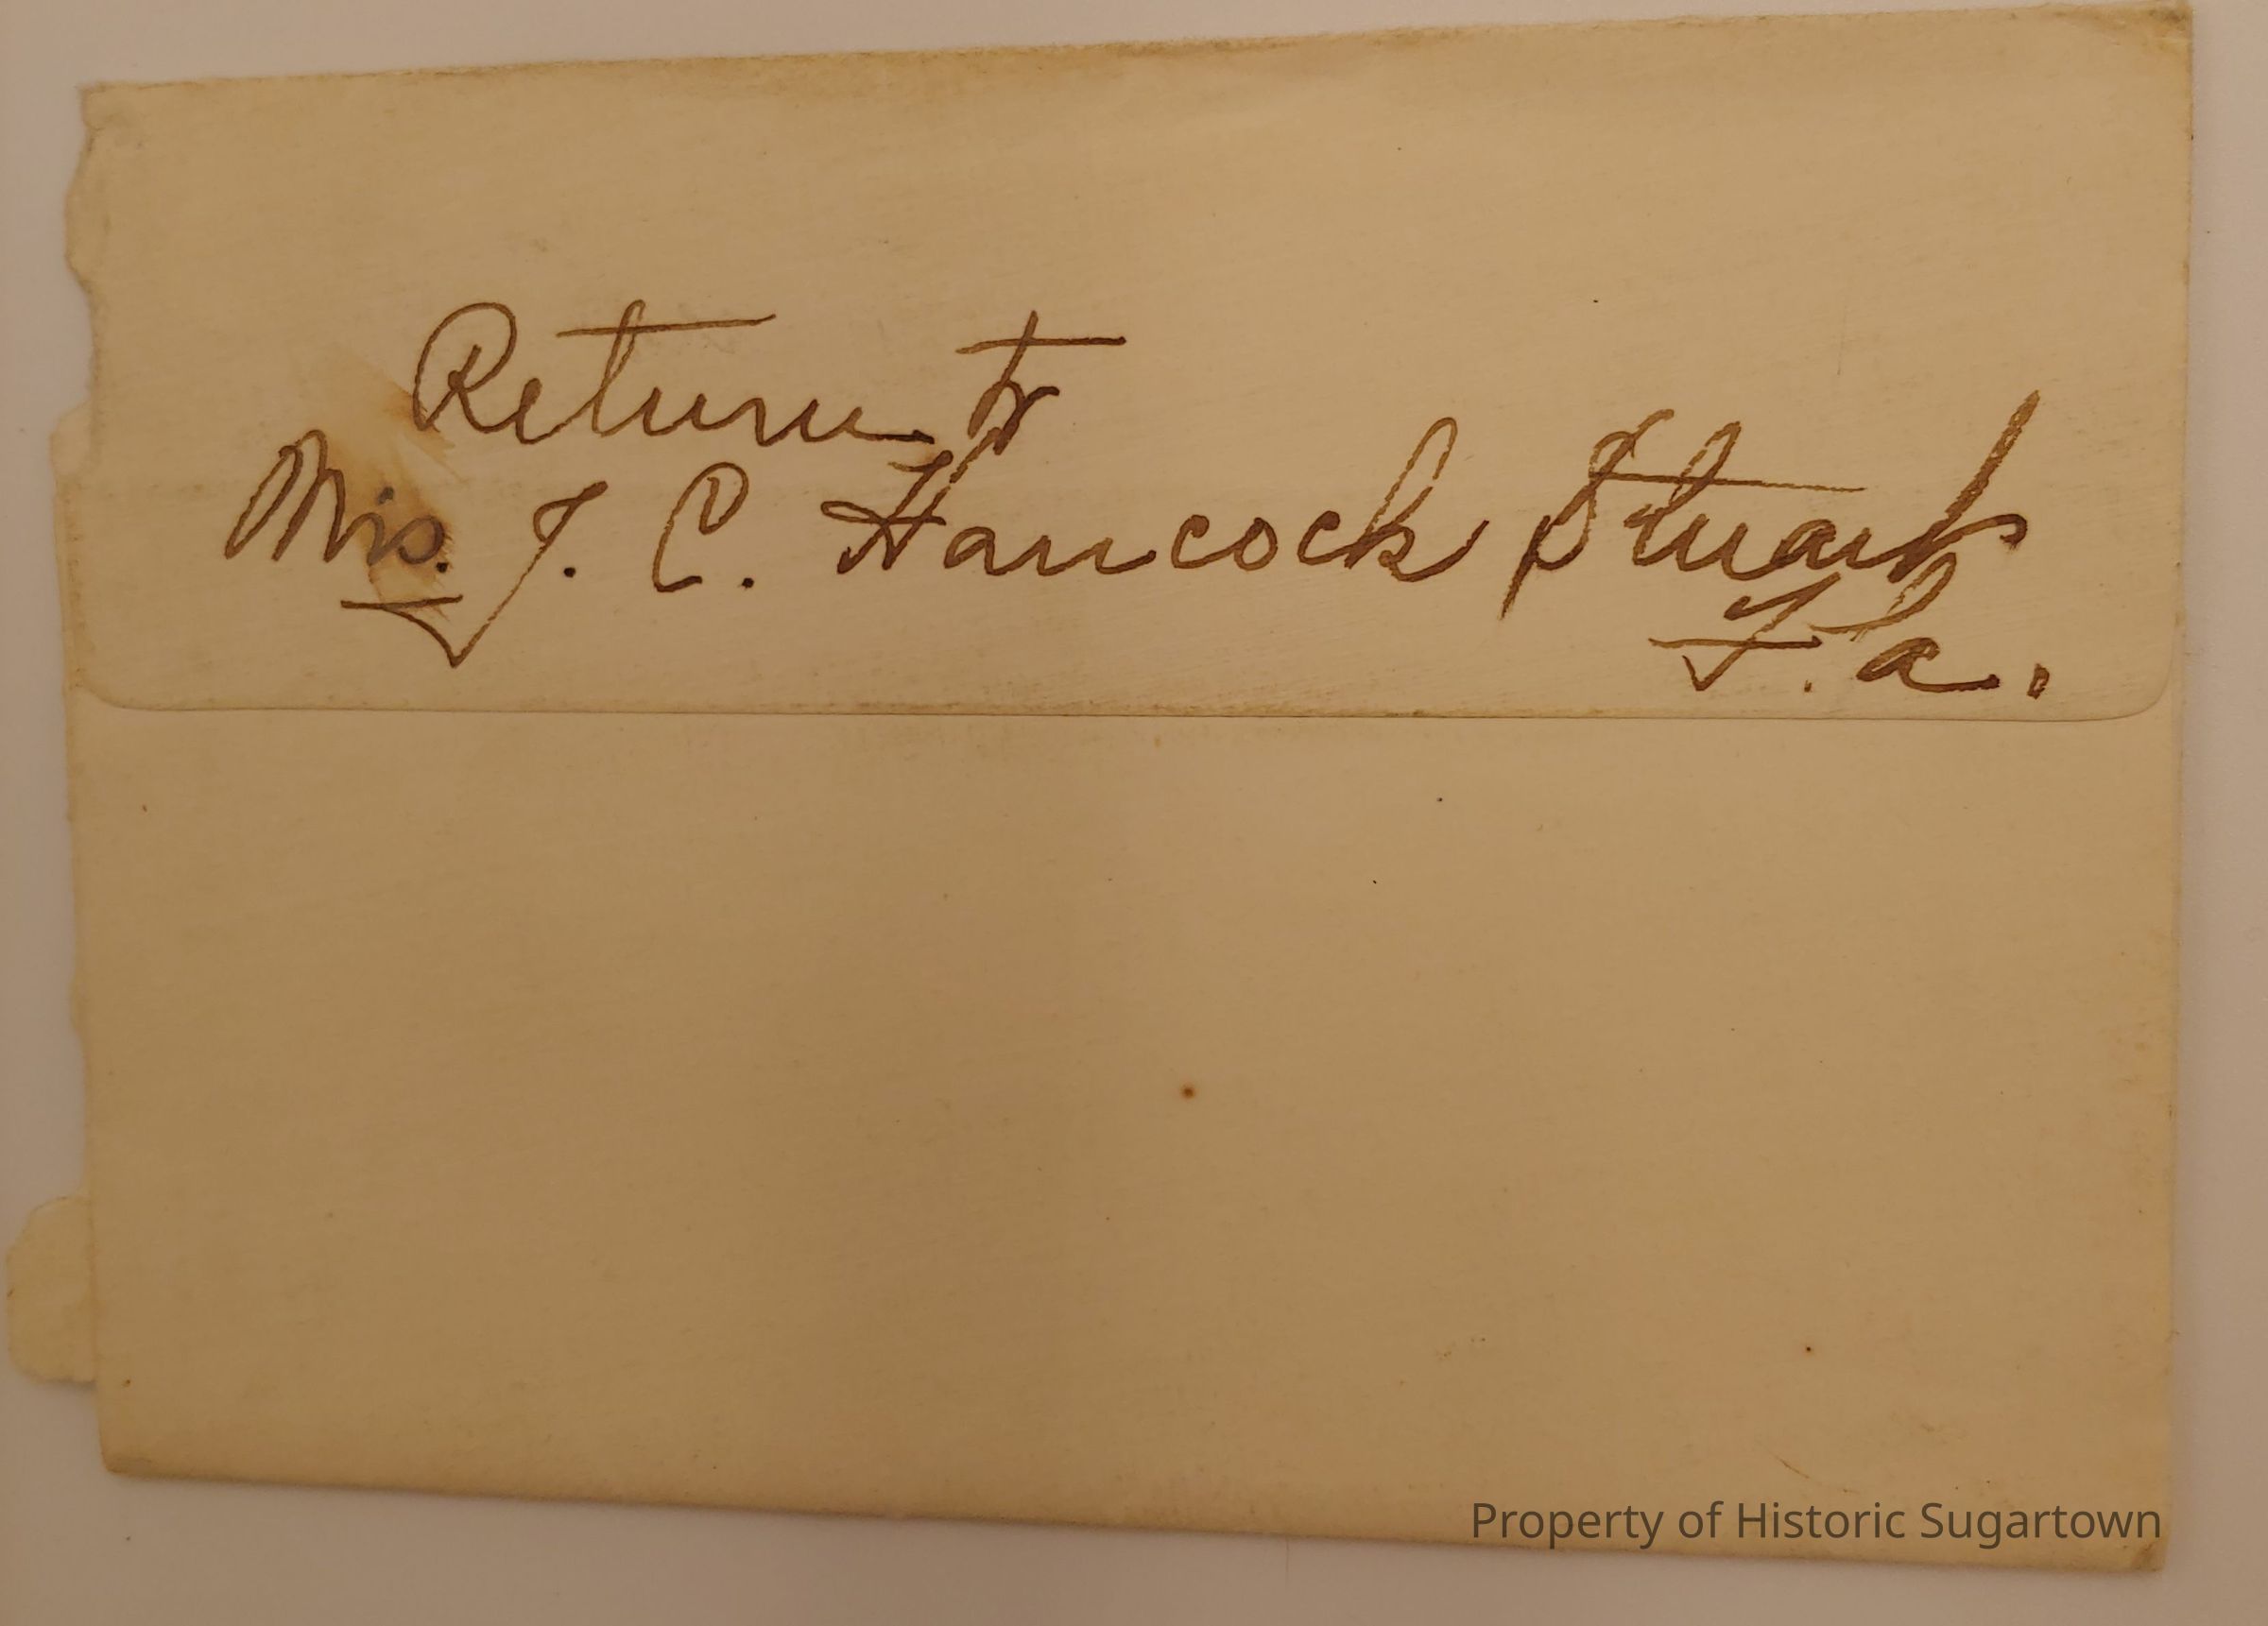 Return to
Mrs. J. C. Hancock Stuart
Fla.
Property of Historic Sugartown